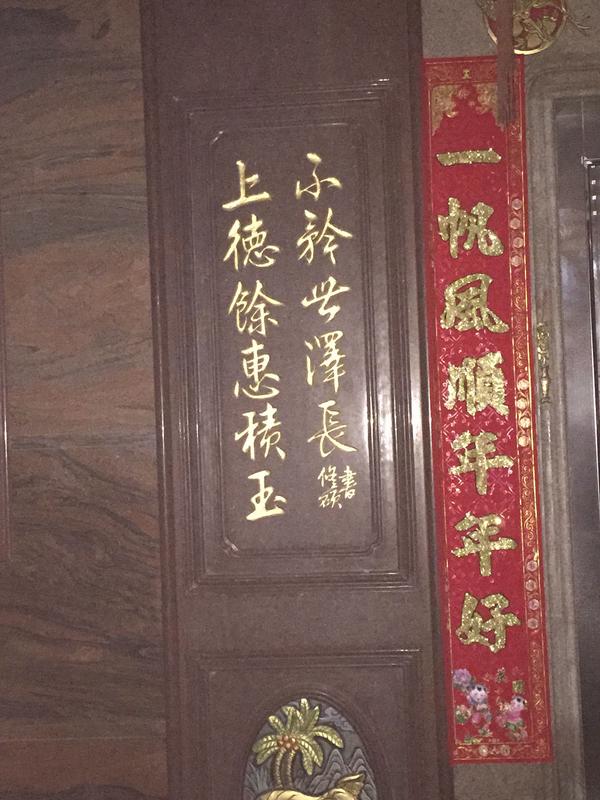 上徳餘惠積玉
不矜世澤長
修碩
書
一帆風順年年好